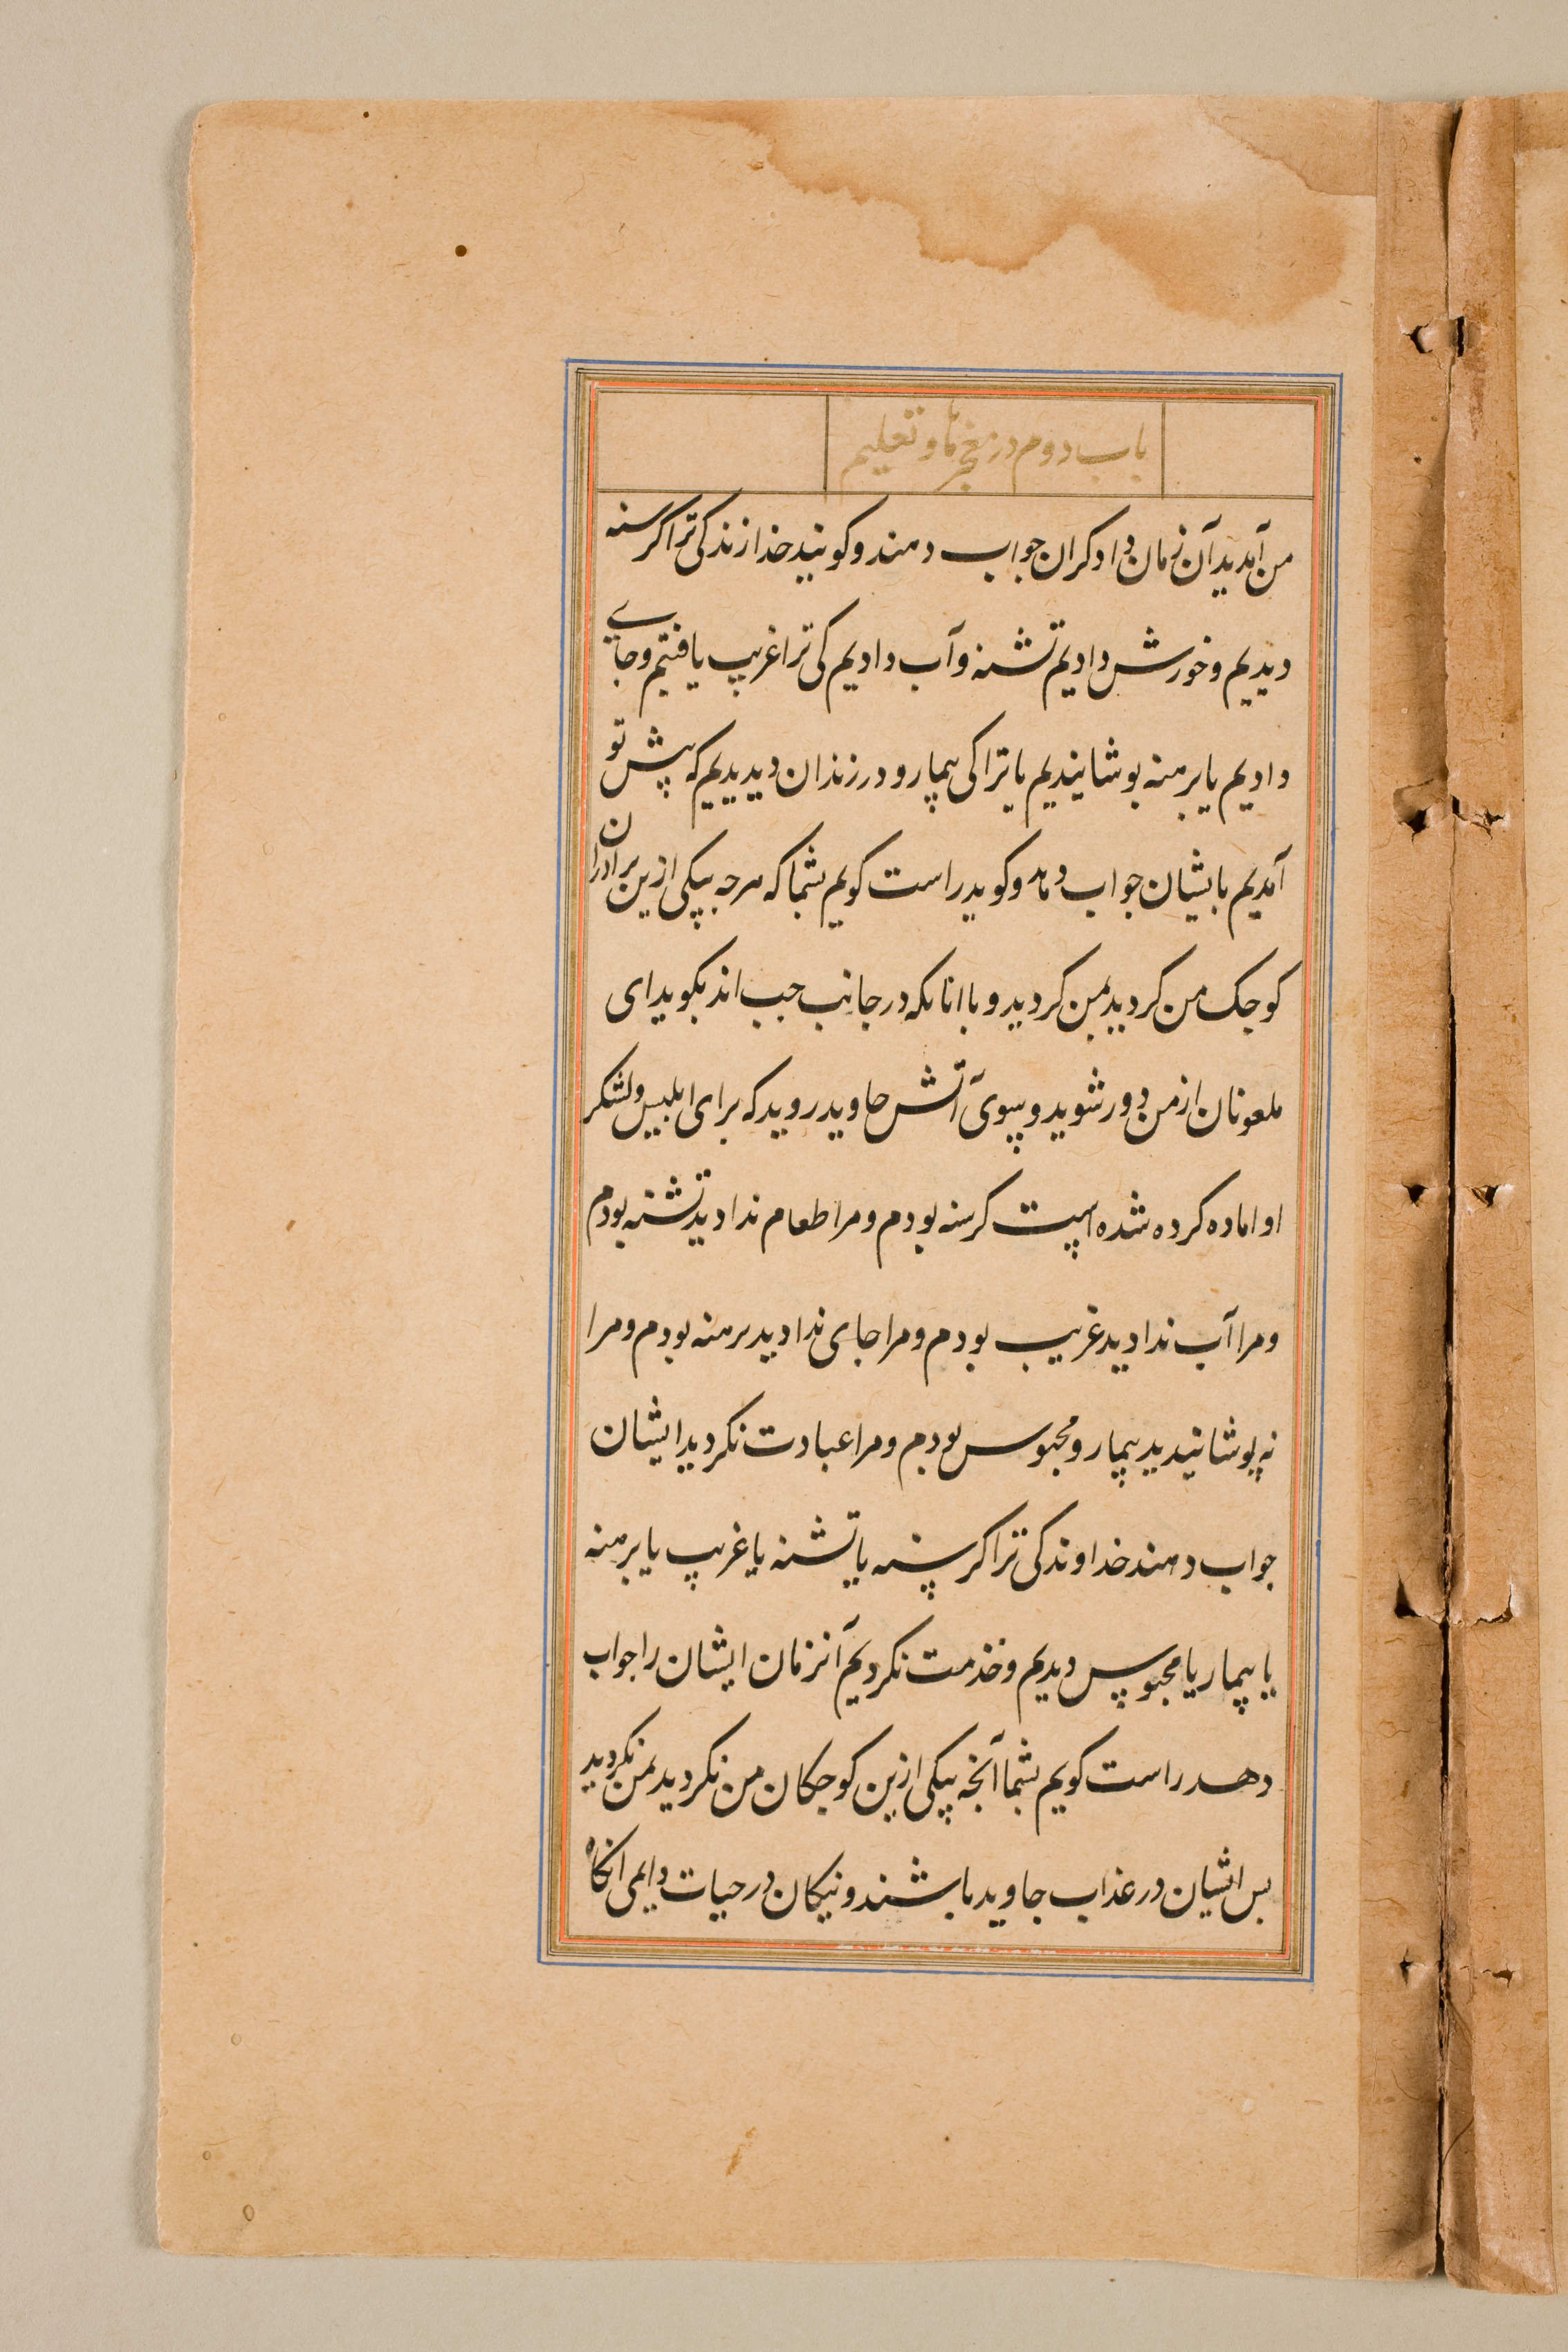 باب دوم در معجزها و تعلیم
من آمدید آن زمان دادکران جواب دهند و کویند خداوند کی ترا کرسنه
دیدیم و خورش دادیم تشنه و آب دادیم کی ترا غریب یافتیم و جای
دادیم یا برهنه پوشانیدیم یا ترا کی بیمار و در زندان دیدیم که پیش تو
آمدیم بایشان جواب دهد و کوید راست کویم بشما که هرچه بیکی ازین برادران
کوچک من کردید بمن کردید و با انانکه در جانب چپ اند بکوید ای
ملعونان از من دور شوید و بسوی آتش جاوید روید که برای ابلیس و لشکر
او اماده کرده شده است کرسنه بودم و مرا طعام ندادید تشنه بودم
و مرا آب ندادید غریب بودم و مرا جای ندادید برهنه بودم و مرا
نه پوشانیدید بیمار و محبوس بودم و مرا عیادت نکردید ایشان
جواب دهند خداوند کی ترا کرسنه یا تشنه یا غریب یا برهنه
یا بیمار یا محبوس دیدیم و خدمت نکردیم آنزمان ایشان را جواب
دهد راست کویم بشما آنچه بیکی ازین کوچکان من نکردید بمن نکردید
پس ایشان در عذاب جاوید باشند و نیکان در حیات دایمی انکاه